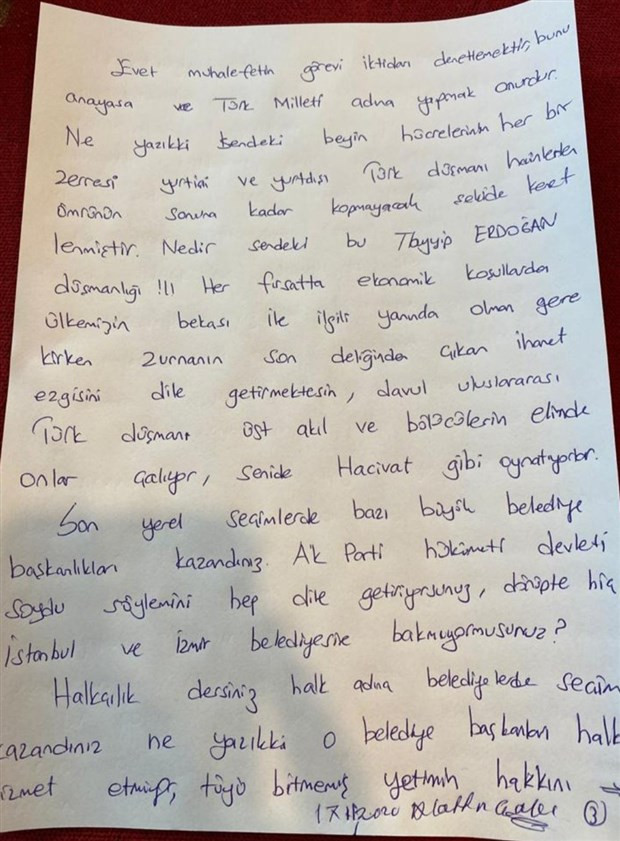 Evet muhalefetin görevi iktidarı denetlemektir, bunu
anayasa ve Türk Milleti adına yapmak onurdur.
Ne yazıkki sendeki beyin hücrelerinin her bir
zerresi yurtiçi ve yurtdışı Türk düşmanı hainlerden
ömrünün sonuna kadar kopmayacak şekilde kenet
lenmiştir. Nedir sendeki bu Tayyip ERDOĞAN
düşmanlığı !!! Her fırsatta ekonomik koşullarda
ülkemizin bekası ile ilgili yanında olman gere
kirken zurnanın son deliğinden çıkan ihanet
ezgisini dile getirmektesin, davul uluslararası
Türk düşmanı üst akıl ve bölücülerin elinde
onlar çalıyor, senide Hacivat gibi oynatıyorlar.
Son yerel seçimlerde bazı büyük belediye
başkanlıkları kazandınız. Ak Parti hükümeti devleti
soydu söylemini hep dile getiriyorsunuz, dönüpte hiç
İstanbul ve İzmir belediyesine bakmıyormusunuz?
Halkçılık dersiniz halk adına belediyelerde seçim
kazandınız ne yazıkki o belediye başkanları halk
izmet etmiyor, tüyü bitmemiş yetimin hakkını →
③